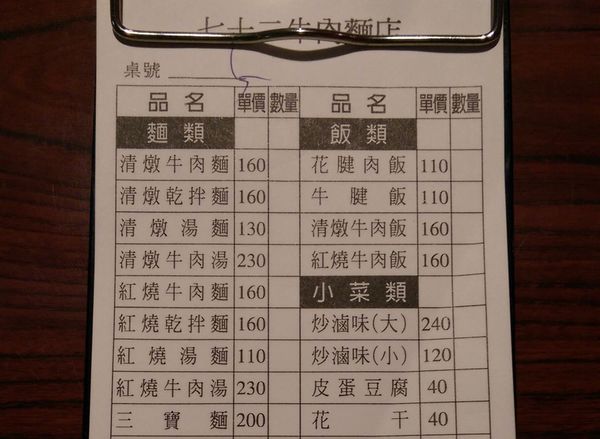 七十二牛肉麵店
桌號
品名 單價 數量 品名 單價 數量
麵類 飯類
清燉牛肉麵 160 花腱肉飯 110
清燉乾拌麵 160 牛腱飯 110
清燉湯麵 130 清燉牛肉飯 160
清燉牛肉湯 230 紅燒牛肉飯 160
紅燒牛肉麵 160 小菜類
紅燒乾拌麵 160 炒滷味(大) 240
紅燒湯麵 110 炒滷味(小) 120
紅燒牛肉湯 230 皮蛋豆腐 40
三寶麵 200 花干 40